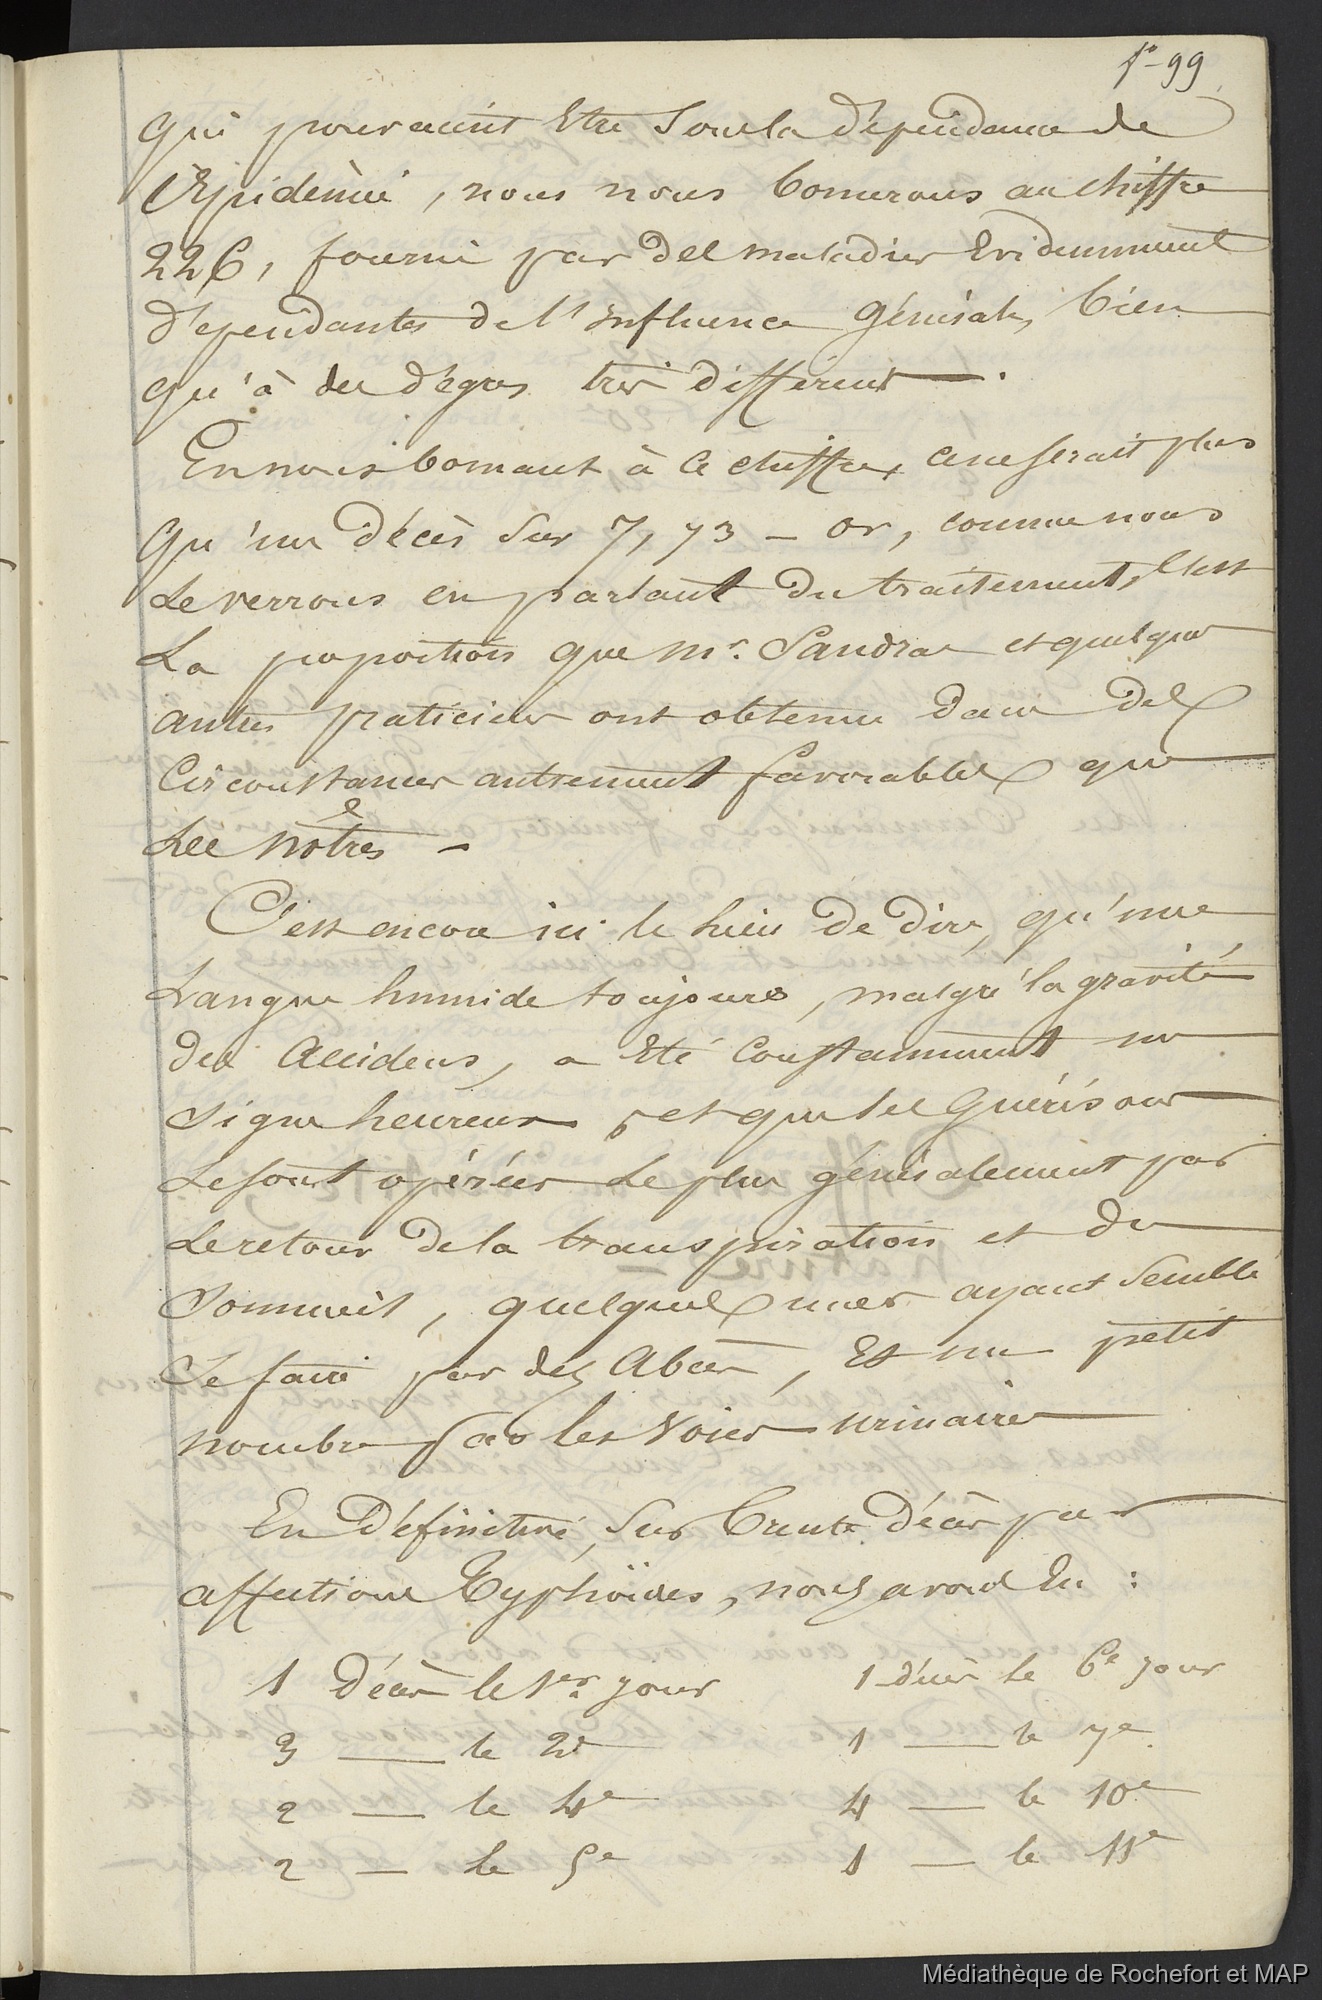 f°-99
qui pouvaient Etre Sous la dépendance de
l'Epidémie, nous nous bornerons au chiffre
226, fourni par des maladies Evidemment
dépendantes de l'influence générale, bien
qu'à des dégrés très différents —.
En nous bornant à ce chiffre, ce ne serait plus
qu'un décès sur 7,73 — or, comme nous
le verrons en parlant du traitement, c'est
La proportion que Mr. Sandras et quelques
autres praticiens ont obtenu dans des
Circonstances autrement favorables que
les nôtres —
C'est encore ici le lieu de dire, qu'une
Langue humide toujours, malgré la gravité
des Accidens, a Eté Constamment un
signe heureux, et que les Guérisons
se sont opérées le plus généralement par
le retour de la transpiration et du
Sommeil, quelques unes ayant semblé
se faire par des Abcès, Et un petit
nombre par les voies urinaires
En Définitive, sur trente décès par
affections Typhoïdes, nous avons Eu :
1 Décès le 1er. jour 1 décès le 6e jour
3 — le 2e 1 — le 7e
2 — le 4e 4 — le 10e
2 — le 5e 1 — le 11e
Médiathèque de Rochefort et MAP